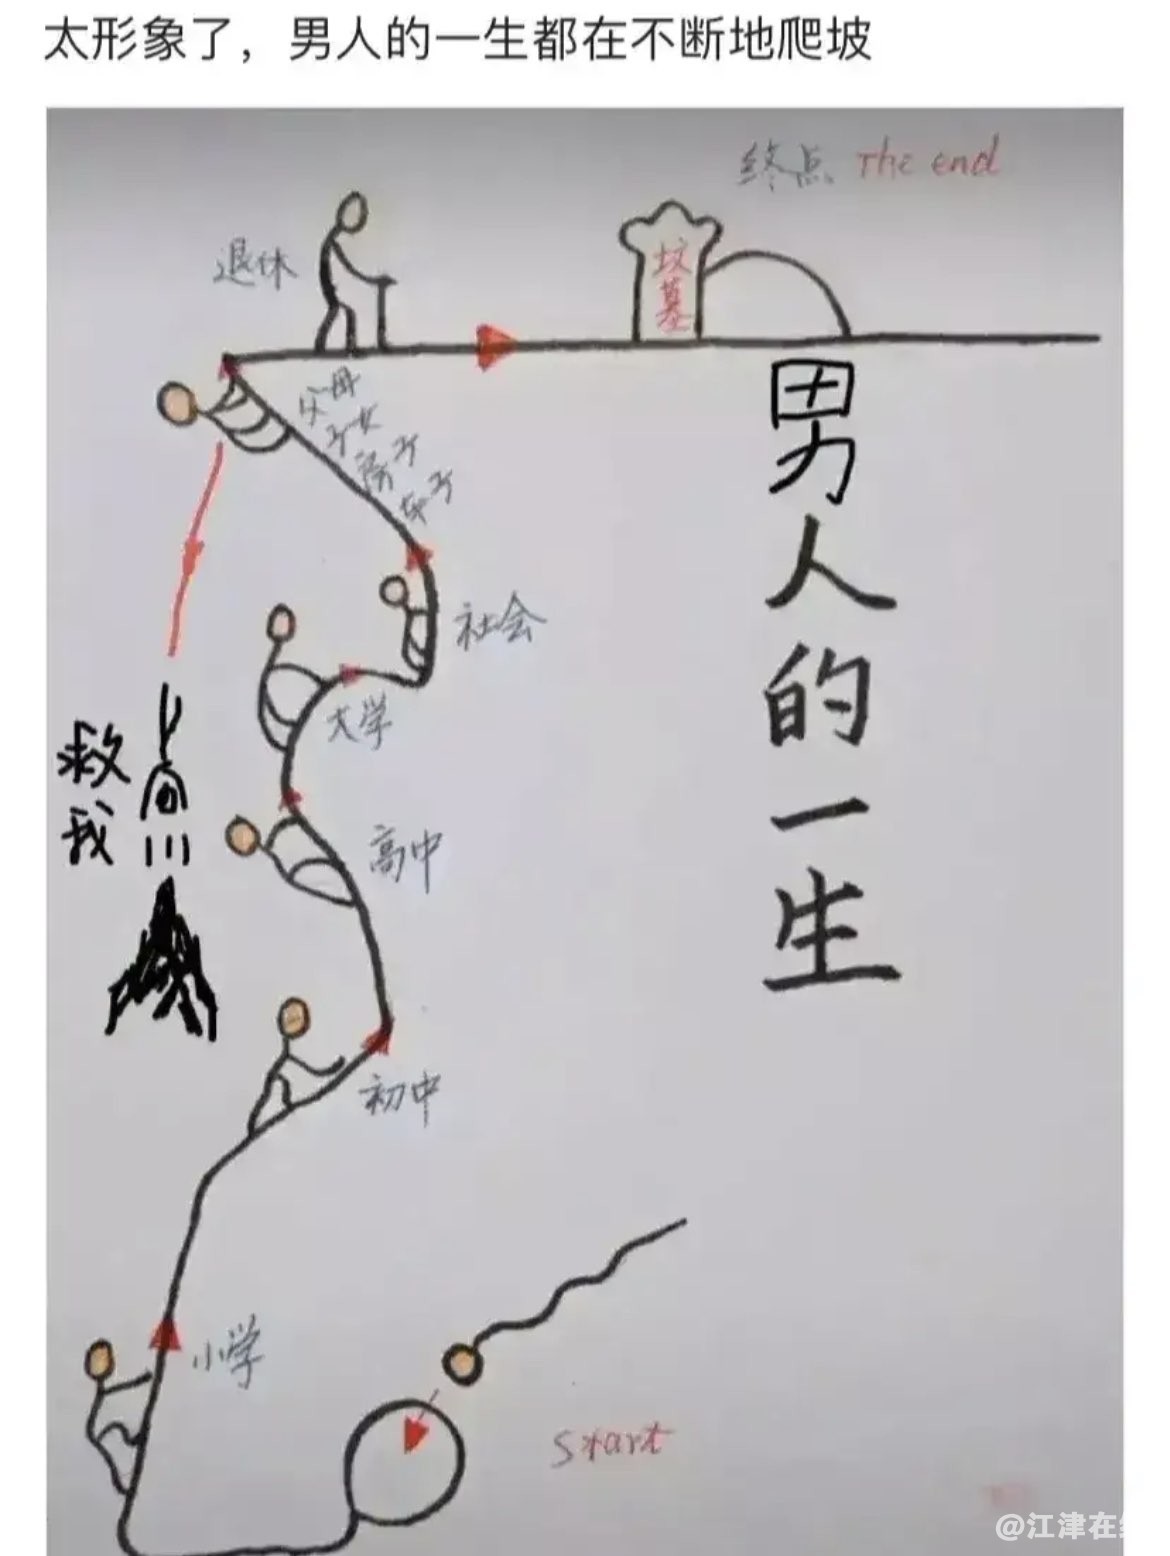 太形象了，男人的一生都在不断地爬坡
终点 The end
退休
坟墓
父母
子女
房子
车子
男人的一生
社会
大学
救我
高中
初中
小学
start
@江津在